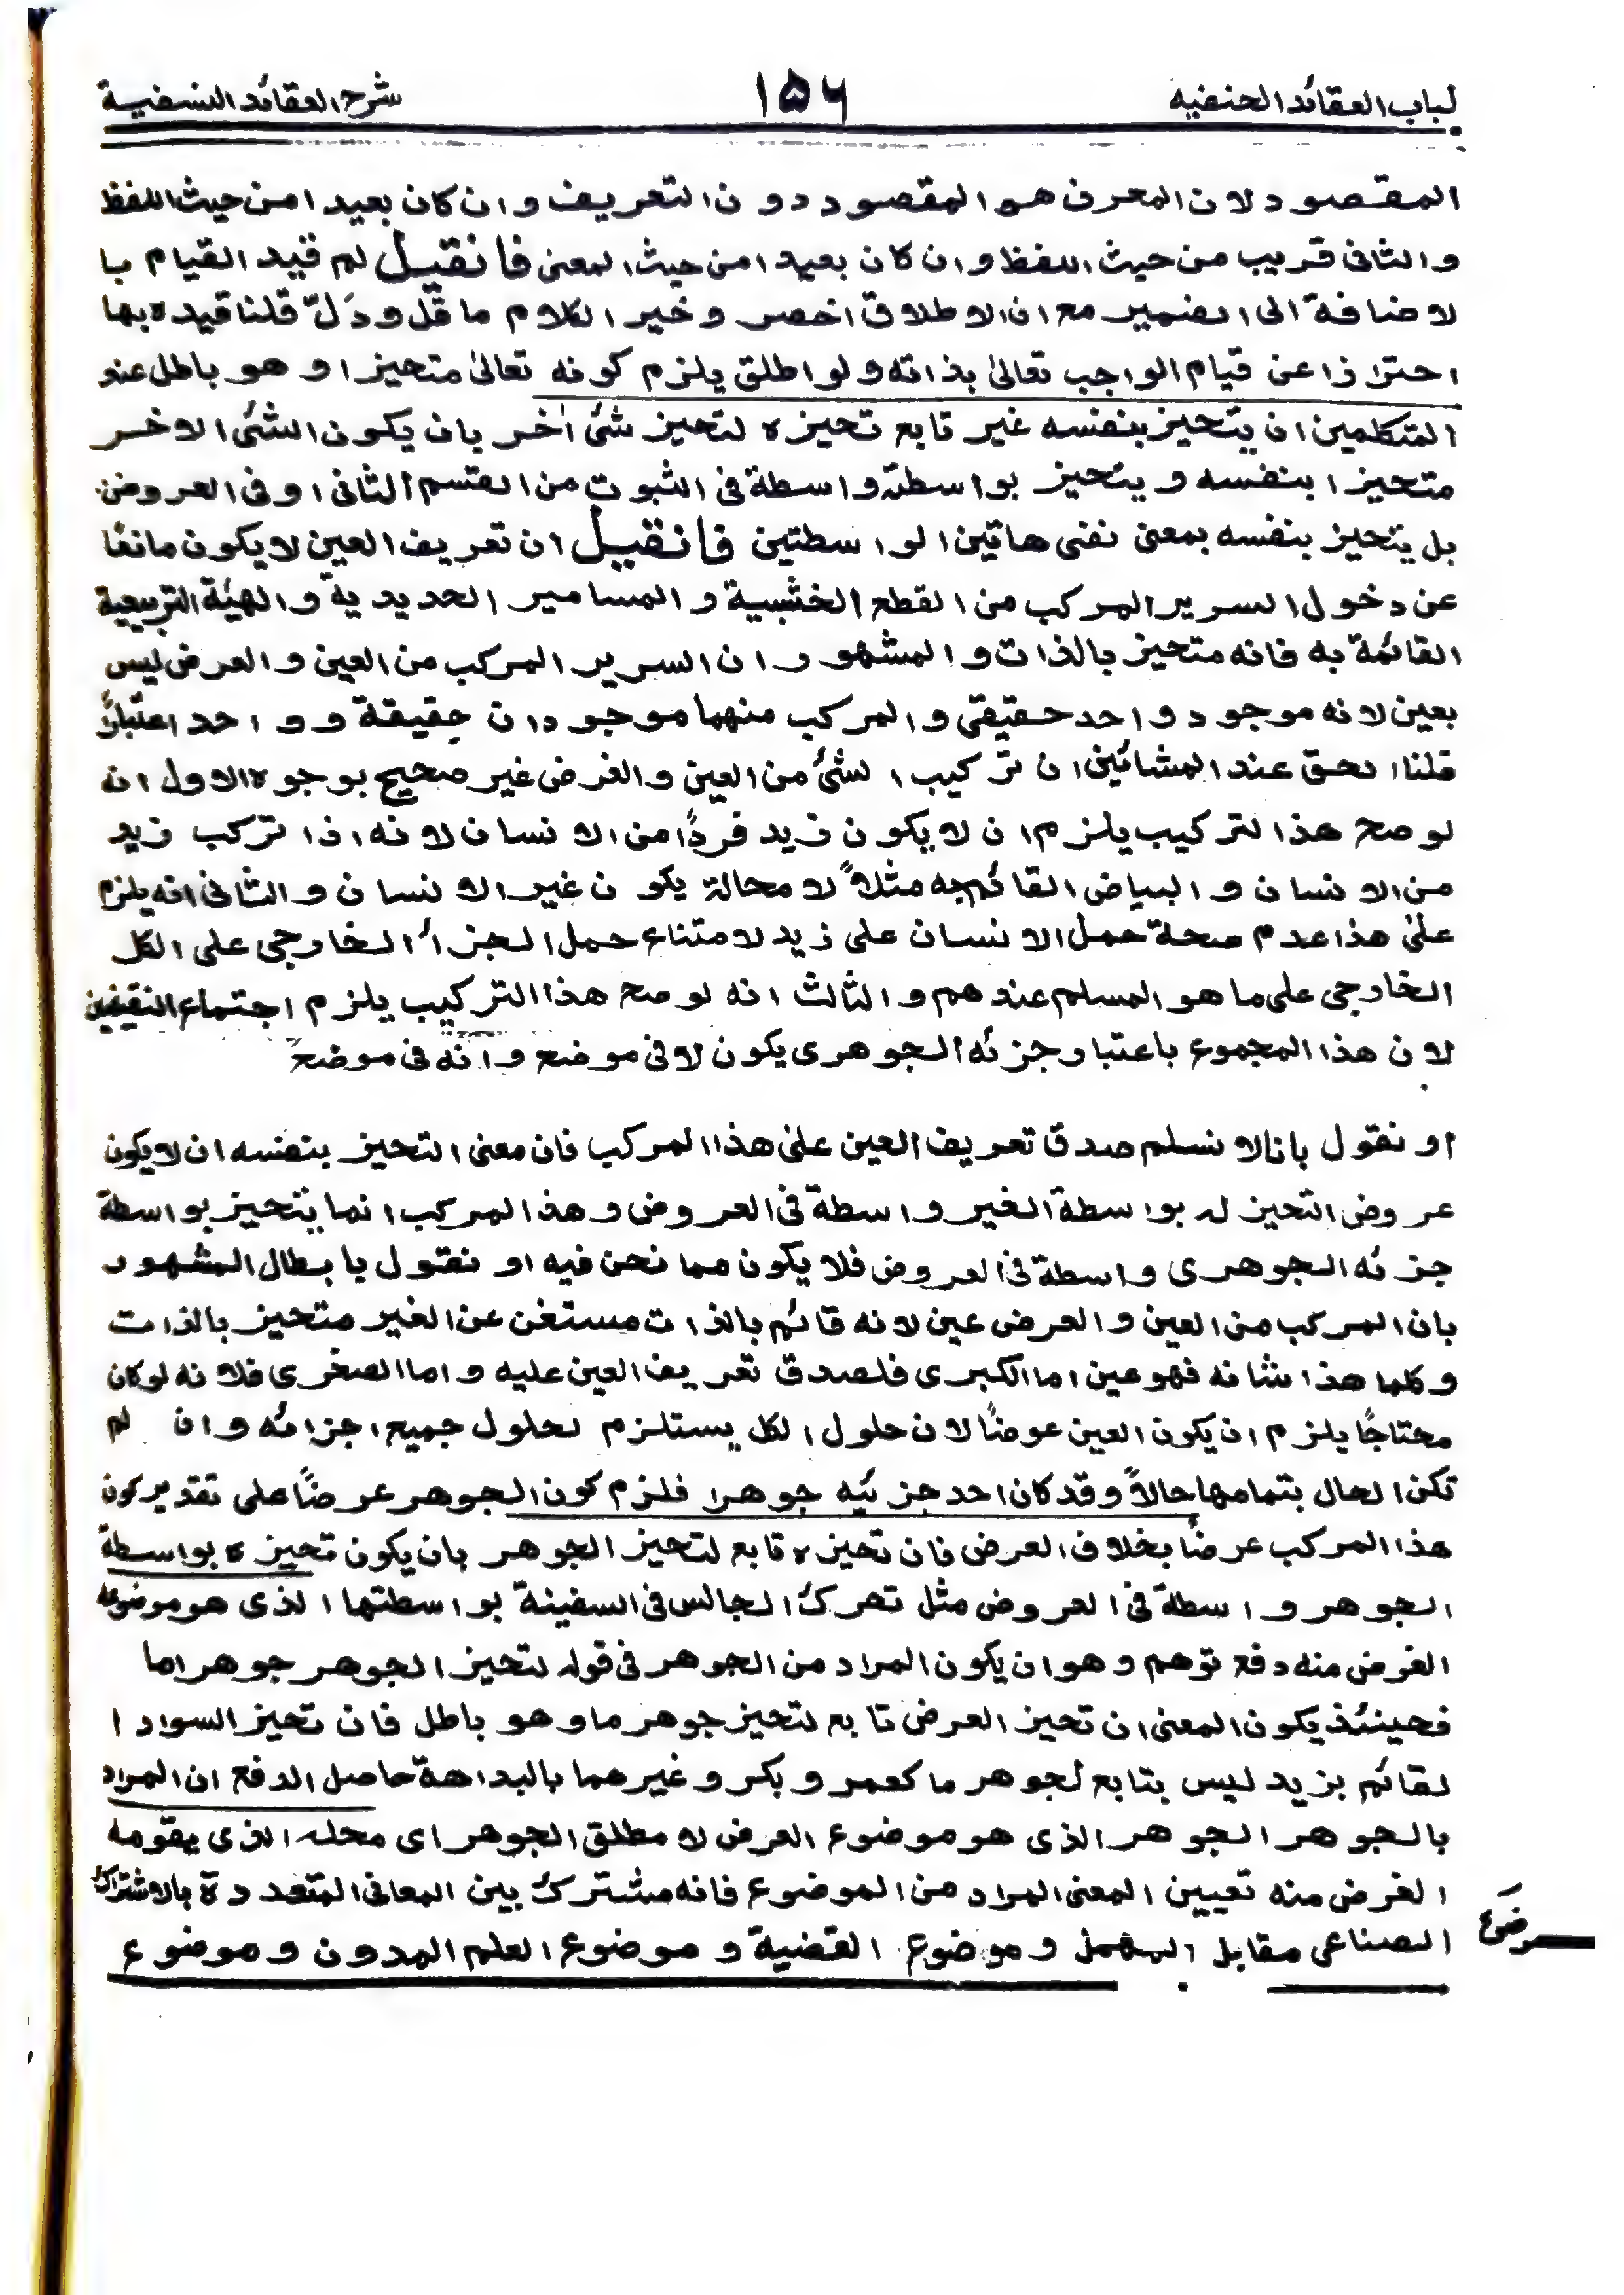 لباب العقائد الحنفیه ۱۵۶ شرح العقائد النسفیة
المقصود لان المعرف هو المقصود دون التعریف وان کان بعیدا من حیث اللفظ
والثانی قریب من حیث اللفظ وان کان بعیدا من حیث المعنی فان قیل لم قید القیام با
لاضافة الی الضمیر مع ان الاطلاق اخصر وخیر الکلام ما قل ودَلّ قلنا قیده بها
احترازا عن قیام الواجب تعالیٰ بذاته ولو اطلق یلزم کونه تعالیٰ متحیزا وهو باطل عند
المتکلمین ان یتحیز بنفسه غیر تابع تحیزه لتحیز شئ اٰخر بان یکون الشئ الاخر
متحیزا بنفسه ویتحیز بواسطته واسطة فی الثبوت من القسم الثانی او فی العروض
بل یتحیز بنفسه بمعنی نفی هاتین الواسطتین فان قیل ان تعریف العین لا یکون مانعًا
عن دخول السریر المرکب من القطع الخشبیة والمسامیر الحدیدیة والهیئة التربیعیة
القائمة به فانه متحیز بالذات والمشهور ان السریر المرکب من العین والعرض لیس
بعین لانه موجود واحد حقیقی والمرکب منهما موجودان حقیقة وواحد اعتبارًا
قلنا الحق عند المشائین ان ترکیب الشئ من العین والعرض غیر صحیح بوجوه الاول انه
لو صح هذا الترکیب یلزم ان لا یکون زید فردًا من الانسان لانه اذا ترکب زید
من الانسان والبیاض القائم به مثلاً لا محالة یکون غیر الانسان والثانی انه یلزم
علیٰ هذا عدم صحة حمل الانسان علی زید لامتناع حمل الجزأ الخارجی علی الکل
الخارجی علی ما هو المسلم عندهم والثالث انه لو صح هذا الترکیب یلزم اجتماع النقیضین
لان هذا المجموع باعتبار جزئه الجوهری یکون لا فی موضع وانه فی موضع
او نقول بانا لا نسلم صدق تعریف العین علیٰ هذا المرکب فان معنی التحیز بنفسه ان لا یکون
عروض التحیز له بواسطة الغیر واسطة فی العروض وهذا المرکب انما یتحیز بواسطة
جزئه الجوهری واسطة فی العروض فلا یکون مما نحن فیه او نقول بابطال المشهور
بان المرکب من العین والعرض عین لانه قائم بالذات مستغن عن الغیر متحیز بالذات
وکلما هذا شانه فهو عین اما الکبری فلصدق تعریف العین علیه واما الصغری فلانه لو کان
محتاجًا یلزم ان یکون العین عرضًا لان حلول الکل یستلزم لحلول جمیع اجزائه وان لم
تکن الحال بتمامها حالاً وقد کان احد جزئیه جوهرا فلزم کون الجوهر عرضًا علی تقدیر کون
هذا المرکب عرضًا بخلاف العرض فان تحیزه تابع لتحیز الجوهر بان یکون تحیزه بواسطة
الجوهر واسطة فی العروض مثل تحرک الجالس فی السفینة بواسطتها الذی هو موضوعه
الغرض منه دفع توهم وهو ان یکون المراد من الجوهر فی قوله لتحیز الجوهر جوهرا ما
فحینئذ یکون المعنی ان تحیز العرض تابع لتحیز جوهر ما وهو باطل فان تحیز السواد ا
لقائم بزید لیس بتابع لجوهر ما کعمر و بکر وغیرهما بالبداهة حاصل الدفع ان المراد
بالجوهر الجوهر الذی هو موضوع العرض لا مطلق الجوهر ای محله الذی یقومه
الغرض منه تعیین المعنی المراد من الموضوع فانه مشترک بین المعانی المتعددة بالاشتراک
الصناعی مقابل المهمل وموضوع القضیة وموضوع العلم المدون وموضوع